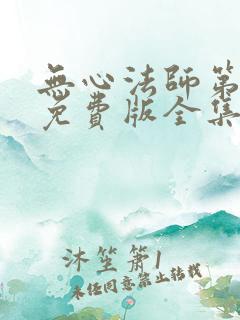 無心法師第
免費版全集
沐笙箫1
未经同意禁止转载